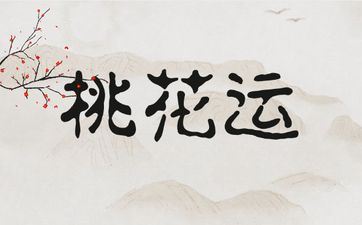 桃花运